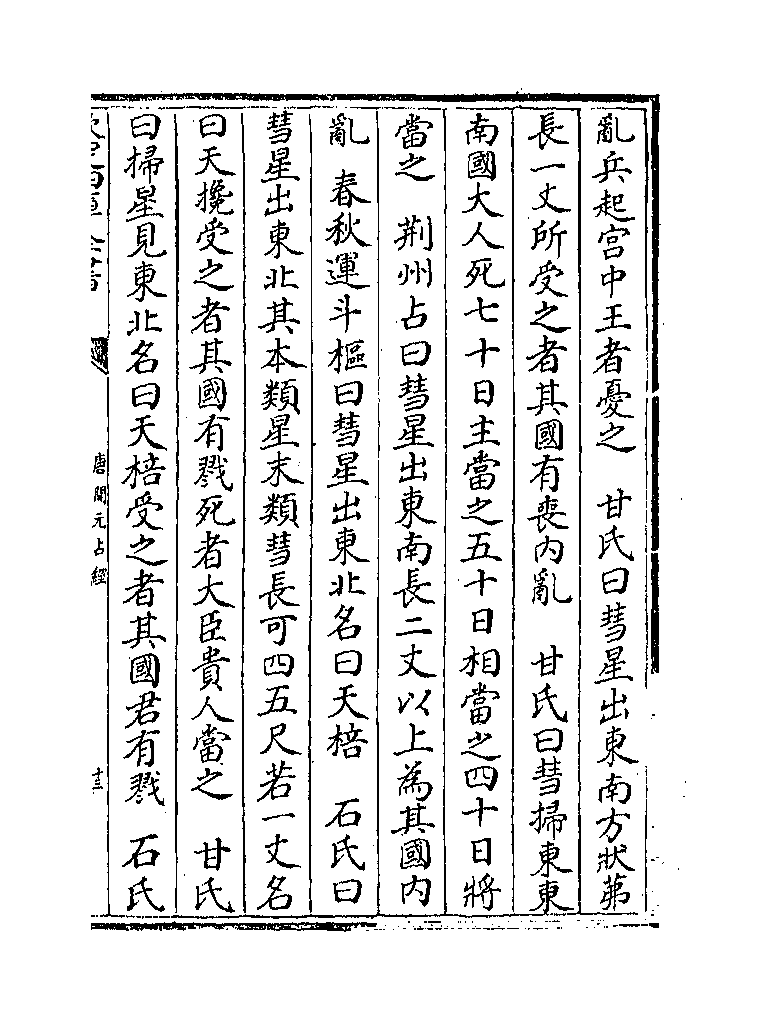 亂兵起宫中王者憂之　甘氏曰彗星出東南方狀茀
長一丈所受之者其國有喪内亂　甘氏曰彗掃東東
南國大人死七十日主當之五十日相當之四十日將
當之　荆州占曰彗星出東南長二丈以上為其國内
亂　春秋運斗樞曰彗星出東北名曰天棓　石氏曰
彗星出東北其本類星末類彗長可四五尺若一丈名
曰天攙受之者其國有戮死者大臣貴人當之　甘氏
曰掃星見東北名曰天棓受之者其國君有戮　石氏
唐開元占經
十三